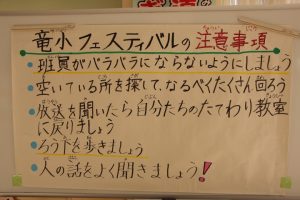 竜小フェスティバルの注意事項
班員がバラバラにならないようにしましょう
空いている所を探して、なるべくたくさん回ろう
放送を聞いたら自分たちのたてわり教室
に戻りましょう
ろう下を歩きましょう
人の話をよく聞きましょう!